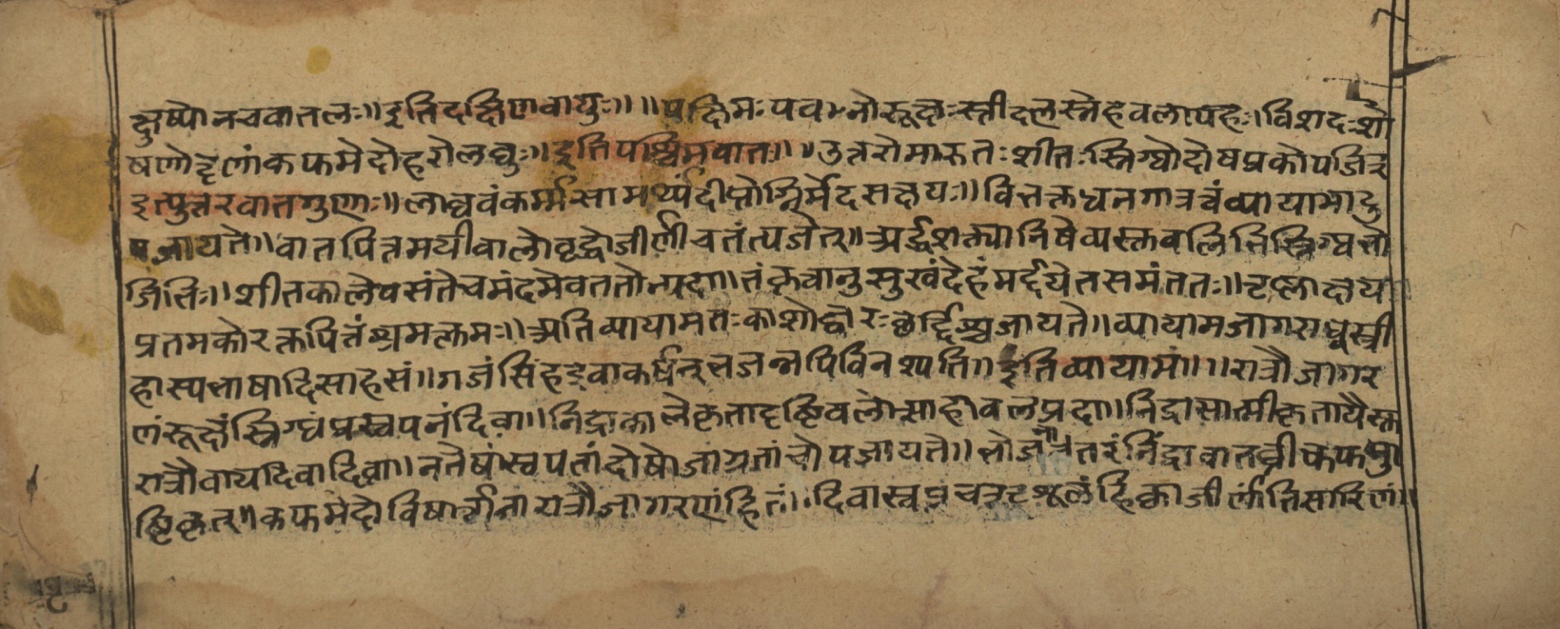 क्षुष्योनचवातलः॥इतिदक्षिणवायुः॥॥पश्चिमःपवनोरूक्षःस्नीदलस्नेहवलापहः।विशदःशो
षणोदृलांकफमेदोहरोलघुः॥इतिपश्चिमवात॥॥उत्तरोमारुतःशीतःस्निग्धोदोषप्रकोपजित्
इत्युत्तरवातगुणाः॥लाघवंकर्म्मसामर्थ्यंदीप्तोग्निर्मेदसक्षयः॥विभक्तघनगात्रत्वंव्यायामादु
पजायते॥वातपित्तमयीवालोवृद्धोजीर्णीचतंत्यजेत्॥अर्द्धशक्त्यानिषेव्यस्तुवलिभिस्निग्धभो
जिभिः॥शीतकालेवसंतेचमंदमेवततोन्यदा॥तंकृत्वानुसुखंदेहंमर्द्दयेतसमंततः॥तृष्णाक्षय
प्रतमकोरक्तपित्तंश्रमक्लमः॥अतिव्यायामतःकाशोज्वरःछर्द्दिश्चजायते॥व्यायामजागराध्वस्त्री
हास्यभाषादिसाहसं॥गजंसिंहइवाकर्षन्भजन्नपिविनश्यति॥इतिव्यायामं॥॥रात्रौजागर
णंरूक्षंस्निग्धंप्रस्वपनंदिवा॥निद्राकालेकृतादृष्टिवलोत्साहावलप्रदा॥निद्रासात्मीकृतायैस्तु
रात्रौवायदिवादिवा॥नतेषांस्वपतांदोषोजाग्रतांचोपजायते॥भोजनोत्तरंनिद्रावातघ्नीकफपु
ष्टिकृत्॥कफमेदोविषार्त्तानांरात्रौजागरणंहितं॥दिवास्वप्नचतृट्शूलहिक्काजीर्णातिसारिणां॥